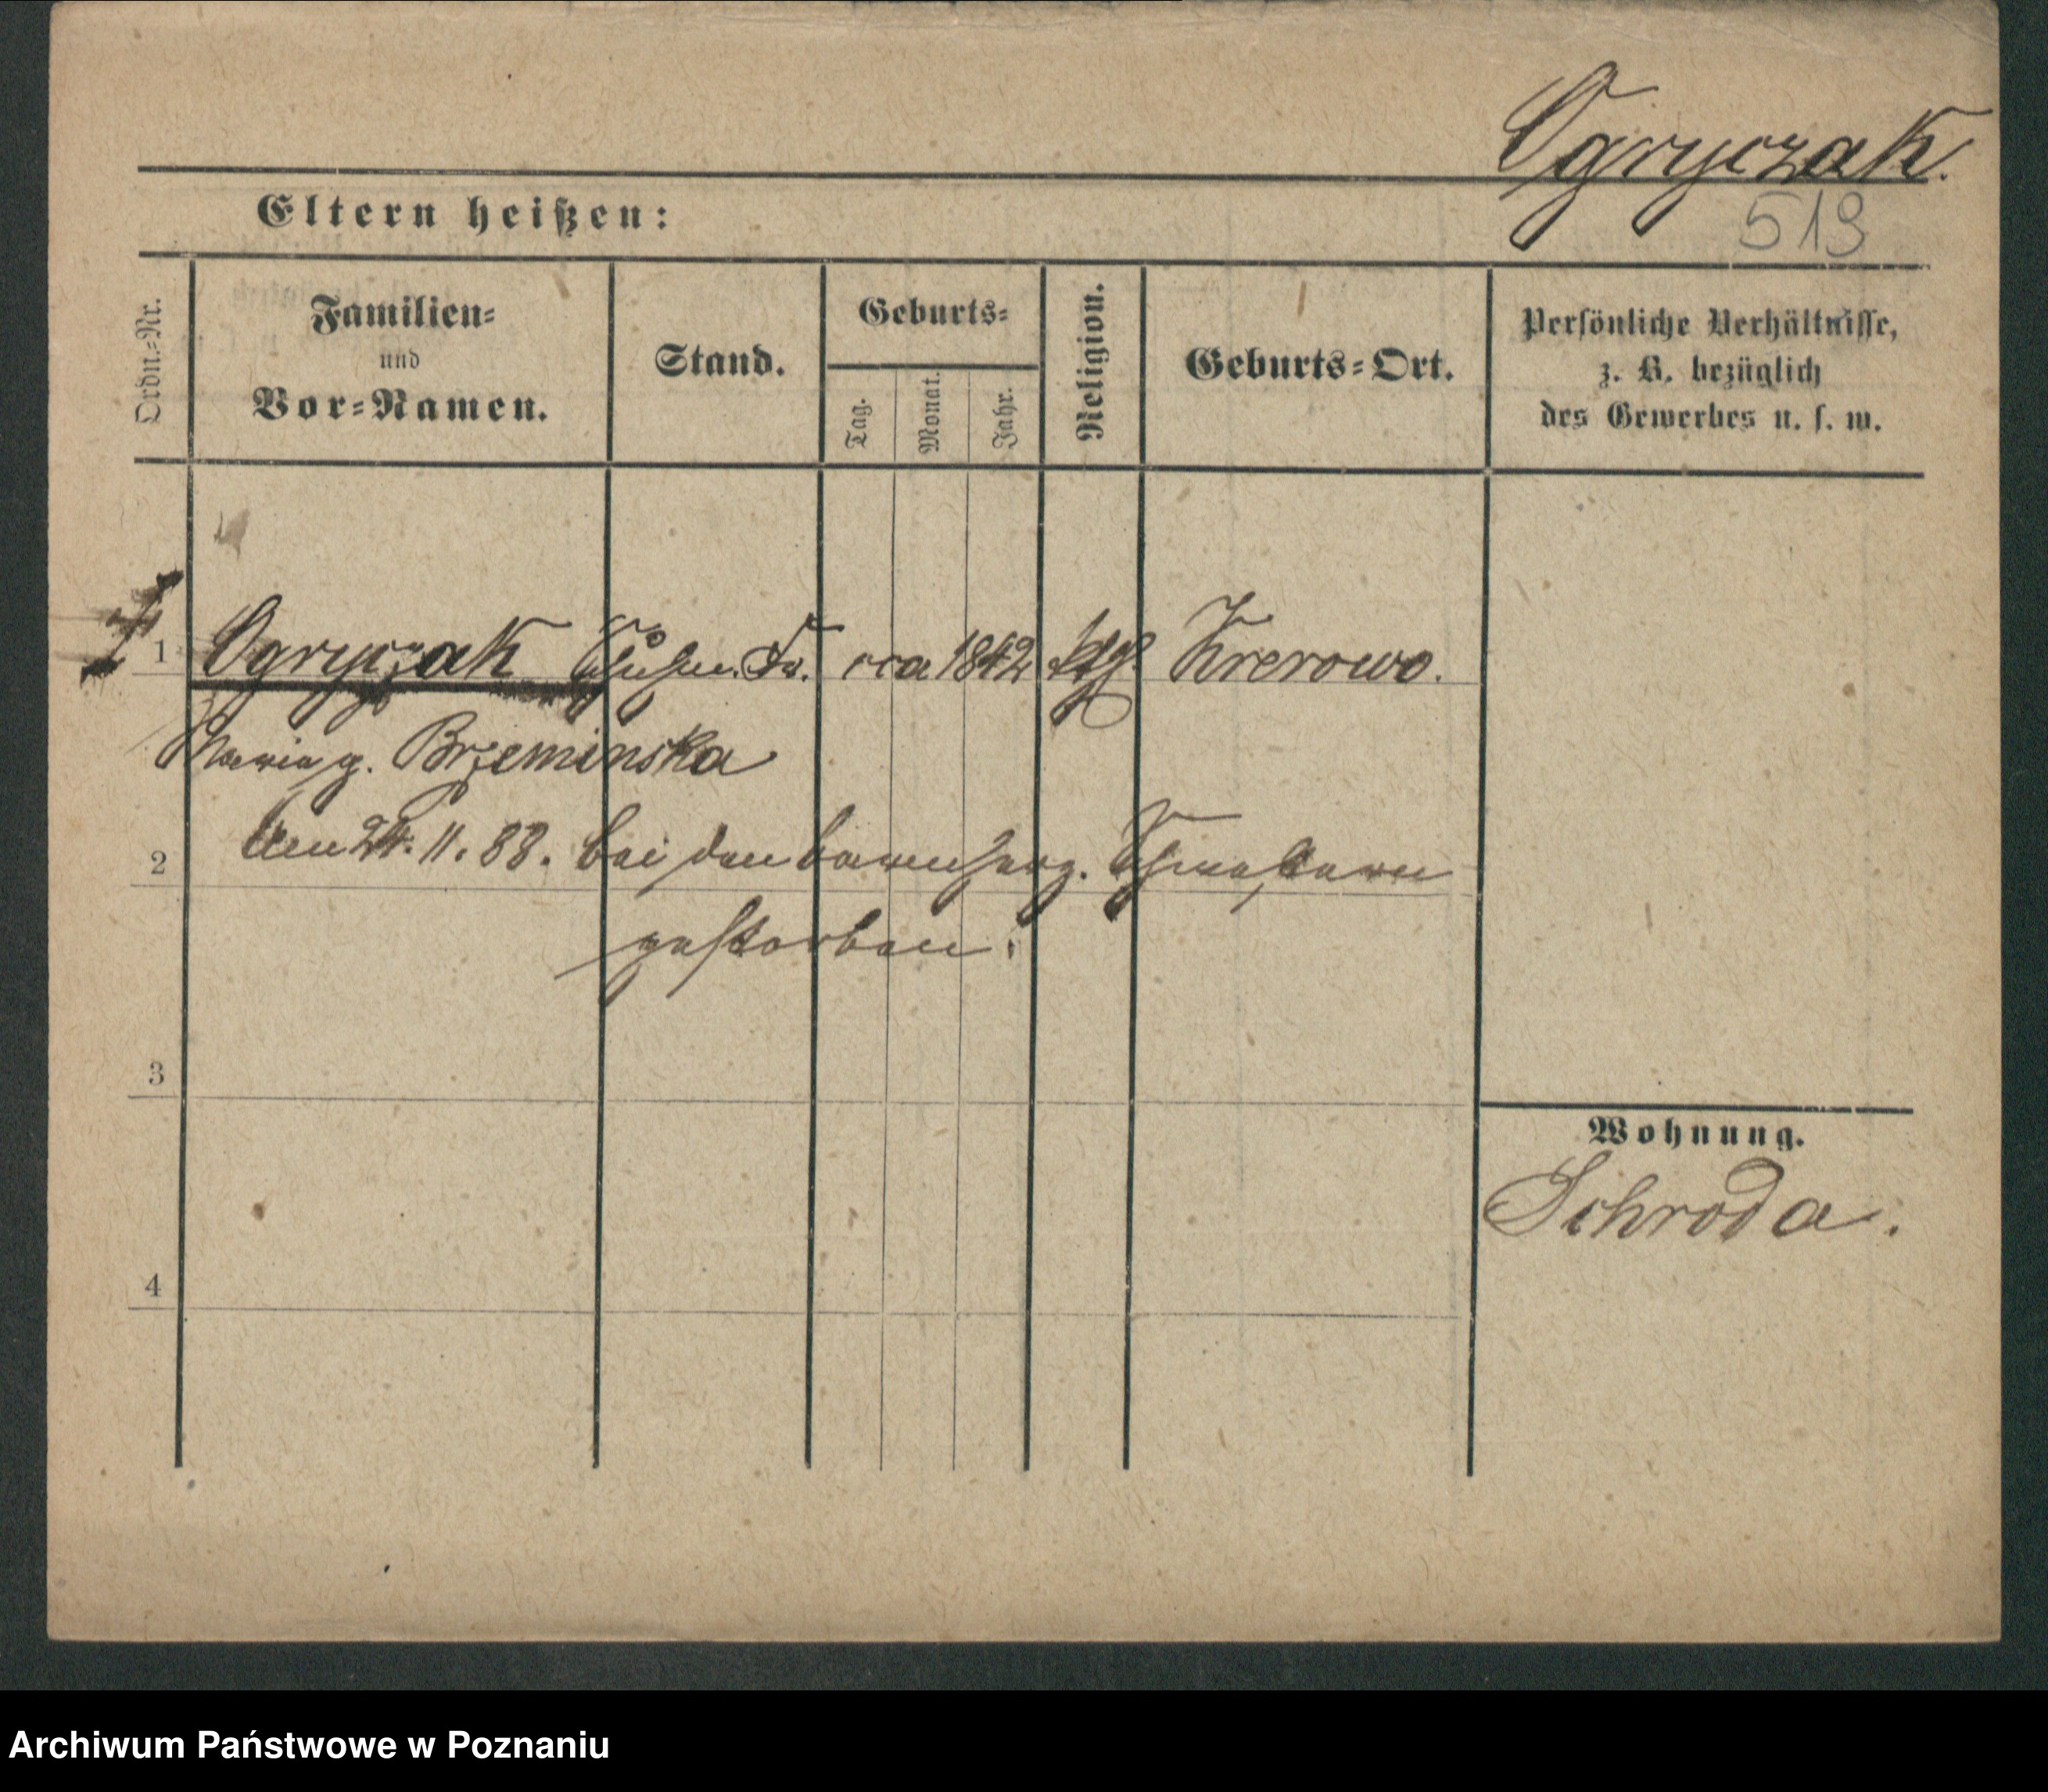 Ogryczak.
519
Eltern heißen:
Ordn.-Nr.
Familien-
und
Vor-Namen.
Stand.
Geburts-
Tag.
Monat.
Jahr.
Religion.
Geburts-Ort.
Persönliche Verhältnisse,
z. B. bezüglich
des Gewerbes u. s. w.
1 Ogryczak Schuhm. Fr. cca 1842 kth. Krerowo.
Maria g. Brzeminska
2 Am 24. 11. 88. bei den barmherz. Schwestern
gestorben.
3
Wohnung.
Schroda.
4
Archiwum Państwowe w Poznaniu